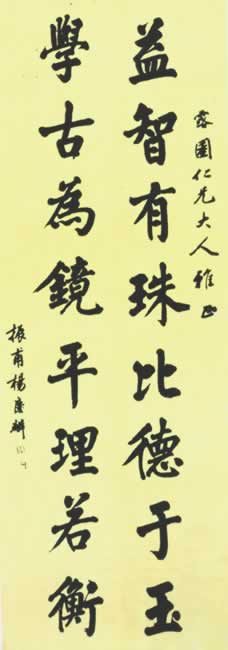 露園仁兄大人雅正
益智有珠比德于玉
學古為鏡平理若衡
振甫楊慶麟